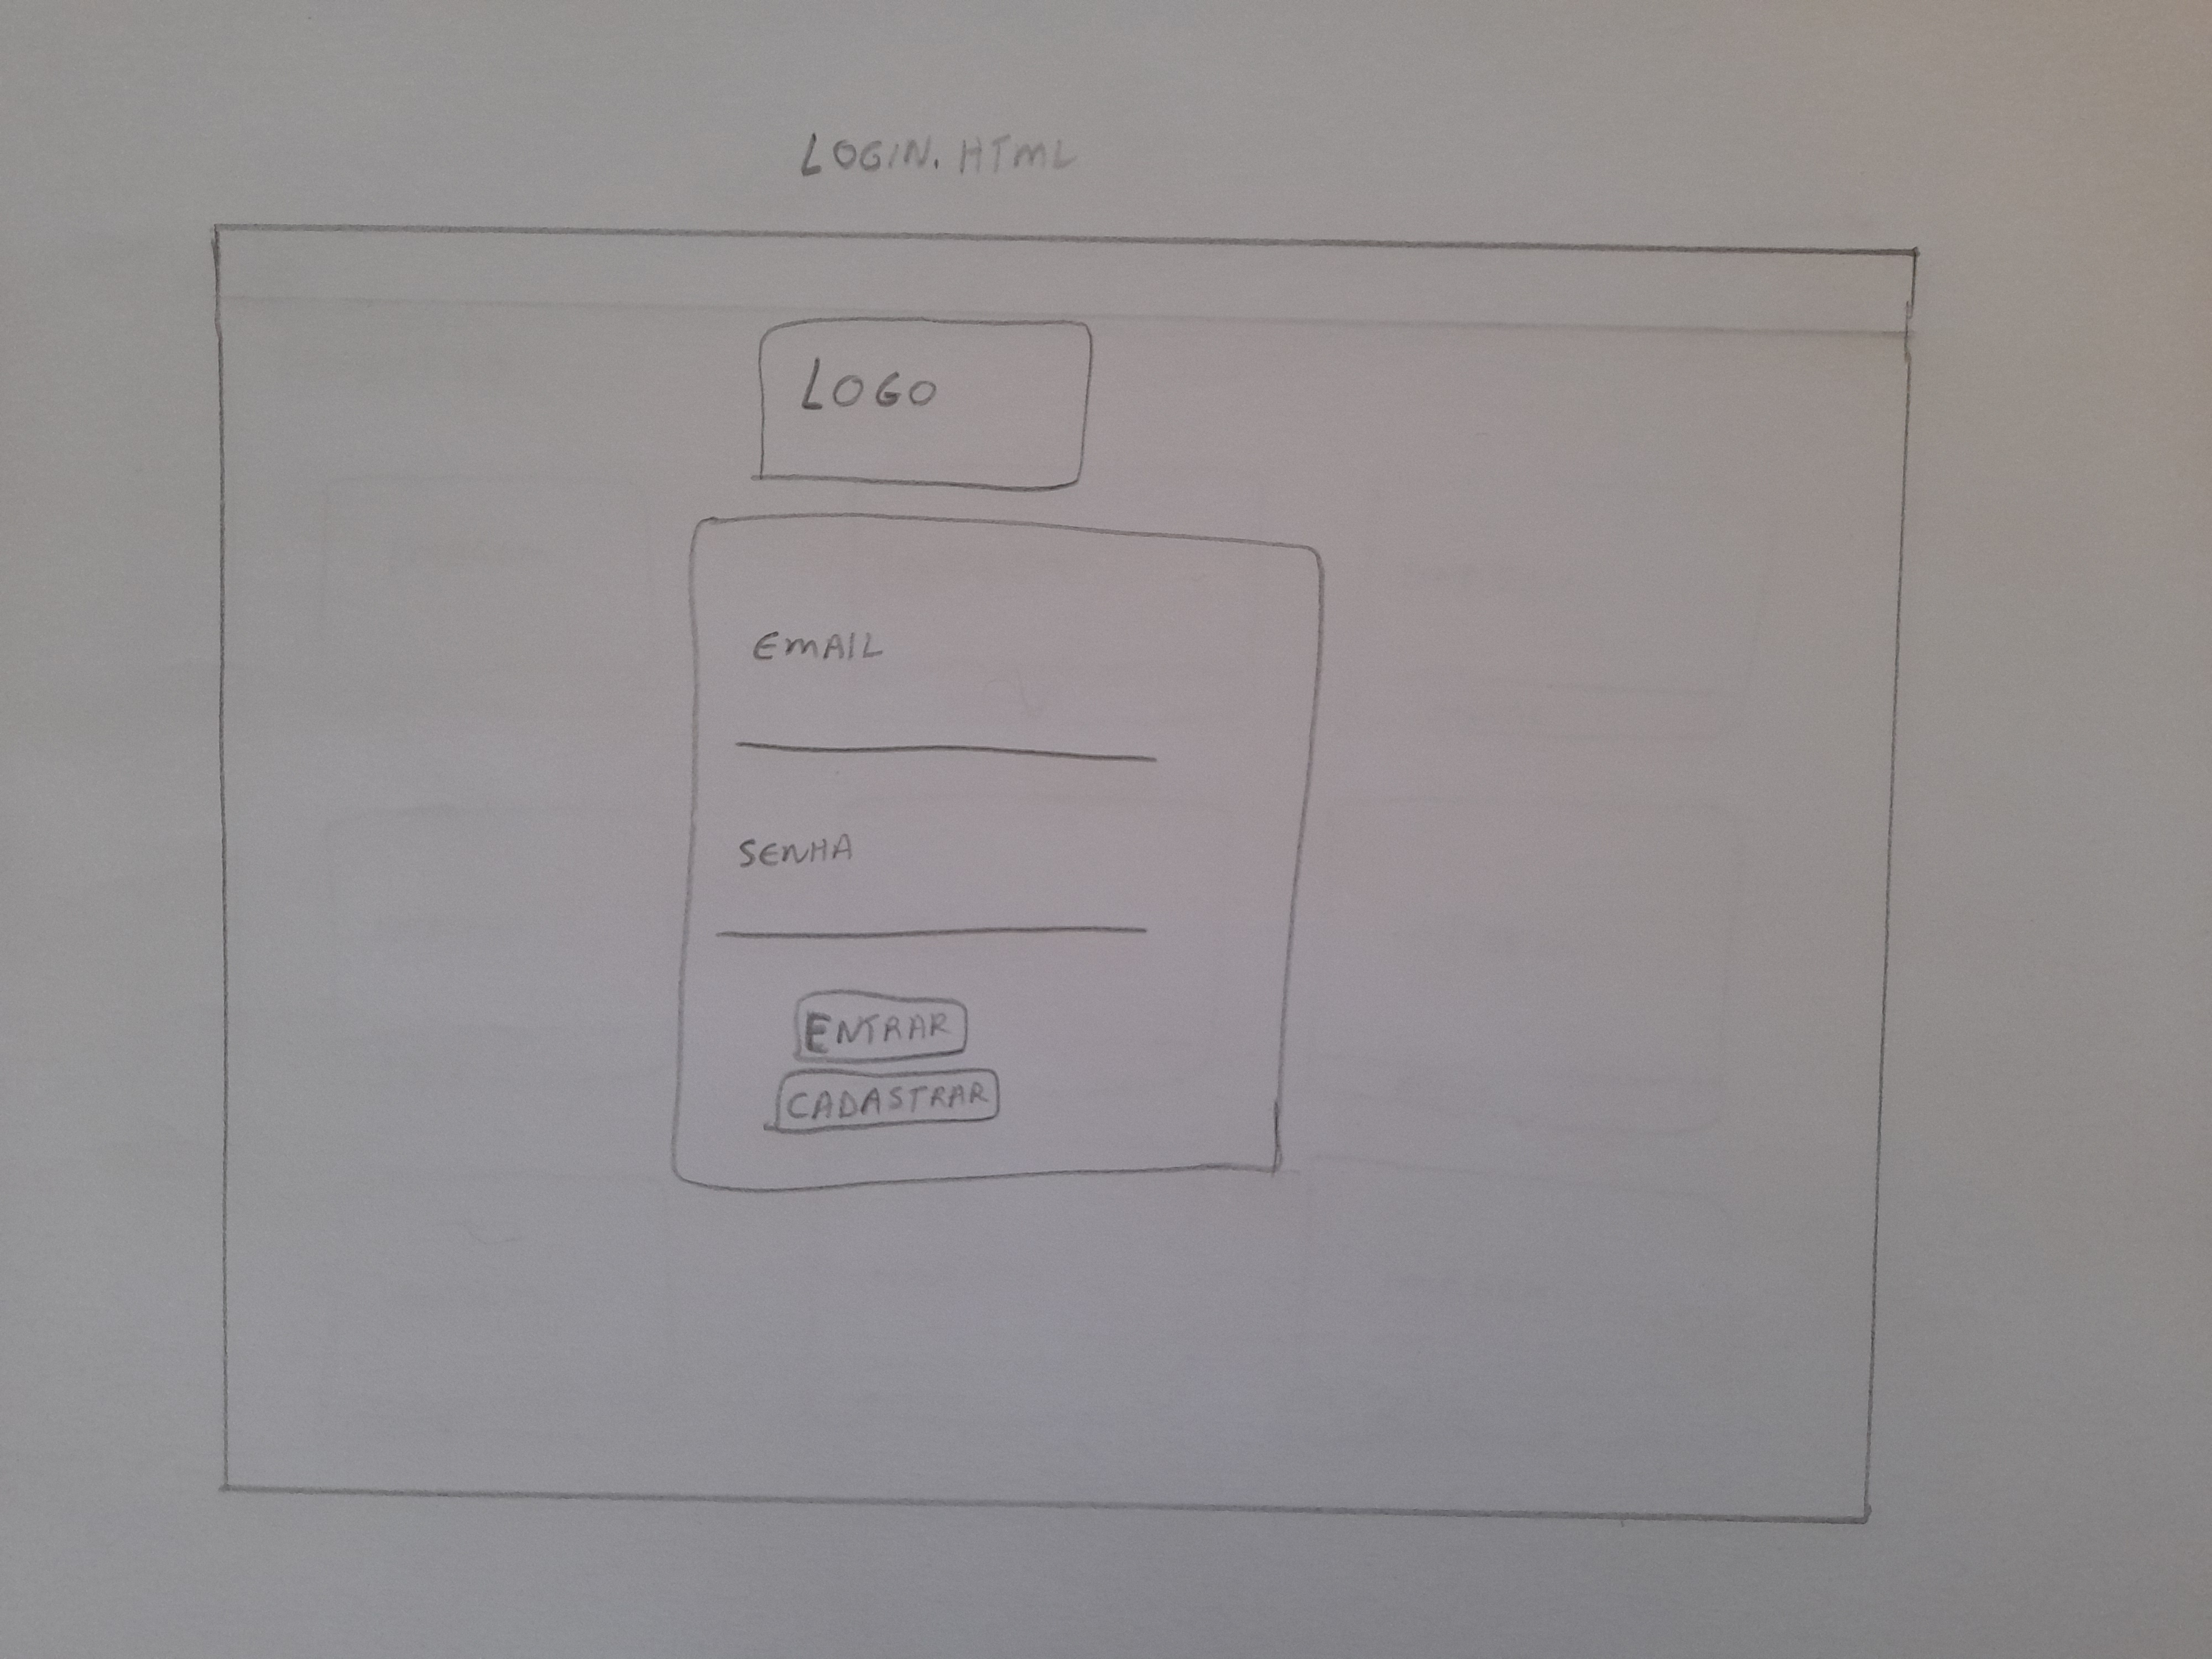 LOGIN.HTML
LOGO
EMAIL
SENHA
ENTRAR
CADASTRAR